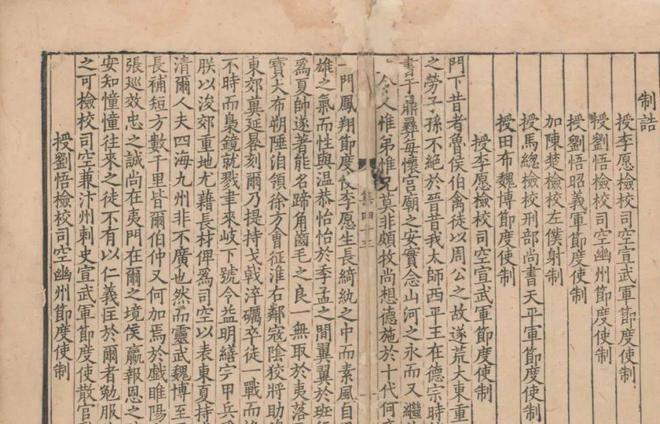 制誥
授李愿檢校司空宣武軍節度使制
授劉悟檢校司空幽州節度使制
授劉悟昭義軍節度使制
加陳楚檢校左僕射制
授馬總檢校刑部尚書天平軍節度使制
授田布魏博節度使制
授李愿檢校司空宣武軍節度使制
門下昔者魯侯伯禽徒以周公之故遂荒大東重
之勞子孫不絕於晉昔我太師西平王在德宗時
書于鼎彝每懷宮廟之安實念山河而又繼
人惟弟惟兄莫非頗牧尚想德施於十代何
集四十三
一門鳳翔節度使李愿生長綺紈之中而素風自
雄之氣而性與温恭怡怡於季孟之間翼翼於班
爲夏帥遂著能名蹄角齒毛之良一無取於夷落
寶大布朔陲洎領徐方會征淮右鄰寇陰狡將助
東郊裏延刻爾乃提持戈戟淬礪卒徒一戰而
不時而梟鏡就戮聿來岐下號令益明繕守甲兵
朕以浚郊重地尤藉長材俾爲司空以表東夏持
清爾人夫四海九州非不廣也然而靈武魏博至
長補短方數千里皆爾伯仲又何加焉於戲睢陽
張巡效忠之誠尚在夷門在爾之境侯嬴報恩之
安知憧憧往來之徒不有以仁義匡於爾者勉服
之可檢校司空兼汴州刺史宣武軍節度使散官
授劉悟檢校司空幽州節度使制